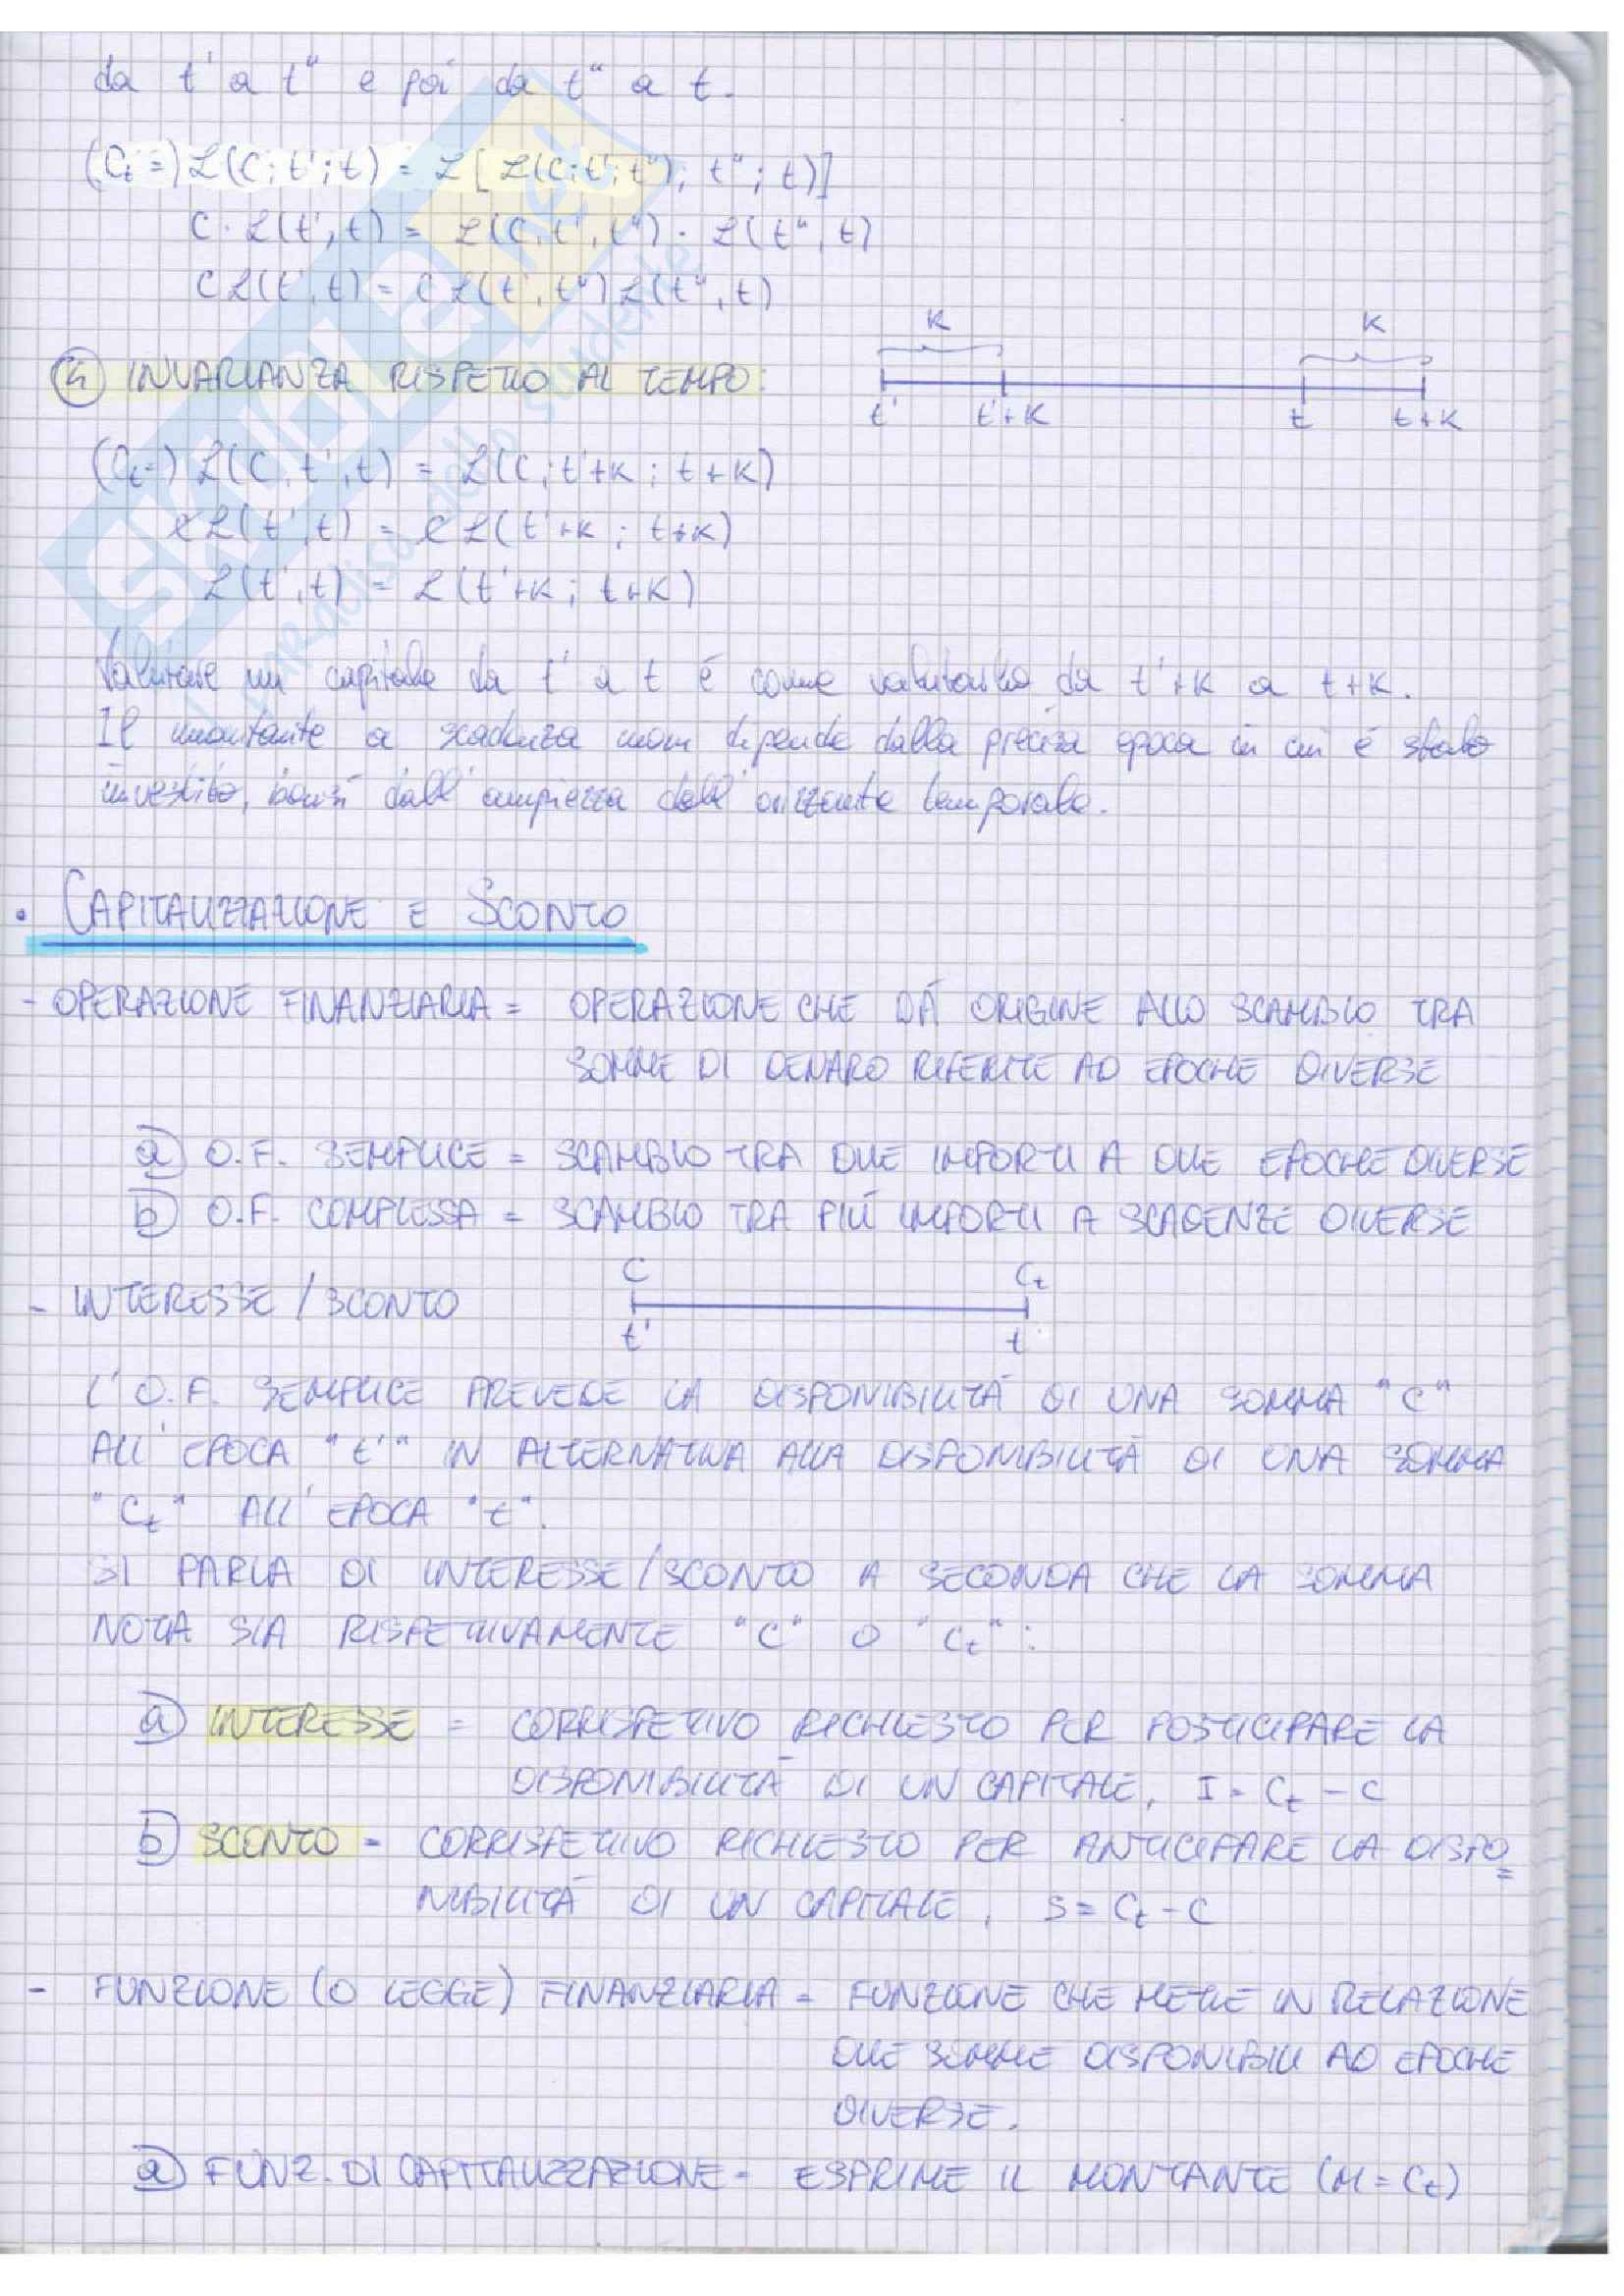 da t' a t" e poi da t" a t.
(Ct =) L(C; t'; t) = L[L(C; t'; t"); t"; t)]
C · L(t', t) = L(C, t', t") · L(t", t)
C L(t', t) = C L(t', t") L(t", t)
K K
④ INVARIANZA RISPETTO AL TEMPO:
t' t'+K t t+K
(Ct=) L(C, t', t) = L(C; t'+K; t+K)
C L(t', t) = C L(t'+K; t+K)
L(t', t) = L(t'+K; t+K)
Valutare un capitale da t' a t é come valutarlo da t'+K a t+K.
Il montante a scadenza non dipende dalla precisa epoca in cui é stato
investito, bensí dall'ampiezza dell'orizzonte temporale.
• CAPITALIZZAZIONE E SCONTO
- OPERAZIONE FINANZIARIA = OPERAZIONE CHE DÁ ORIGINE ALLO SCAMBIO TRA
SOMME DI DENARO RIFERITE AD EPOCHE DIVERSE
a) O.F. SEMPLICE = SCAMBIO TRA DUE IMPORTI A DUE EPOCHE DIVERSE
b) O.F. COMPLESSA = SCAMBIO TRA PIÚ IMPORTI A SCADENZE DIVERSE
C Ct
- INTERESSE / SCONTO
t' t
L'O.F. SEMPLICE PREVEDE LA DISPONIBILITÁ DI UNA SOMMA "C"
ALL'EPOCA "t'" IN ALTERNATIVA ALLA DISPONIBILITÁ DI UNA SOMMA
"Ct" ALL'EPOCA "t".
SI PARLA DI INTERESSE/SCONTO A SECONDA CHE LA SOMMA
NOTA SIA RISPETTIVAMENTE "C" O "Ct":
a) INTERESSE = CORRISPETTIVO RICHIESTO PER POSTICIPARE LA
DISPONIBILITÁ DI UN CAPITALE, I = Ct - C
b) SCONTO = CORRISPETTIVO RICHIESTO PER ANTICIPARE LA DISPO=
NIBILITÁ DI UN CAPITALE, S = Ct - C
- FUNZIONE (O LEGGE) FINANZIARIA = FUNZIONE CHE METTE IN RELAZIONE
DUE SOMME DISPONIBILI AD EPOCHE
DIVERSE.
a) FUNZ. DI CAPITALIZZAZIONE = ESPRIME IL MONTANTE (M = Ct)
SKUOLA.net
il paradiso dello studente